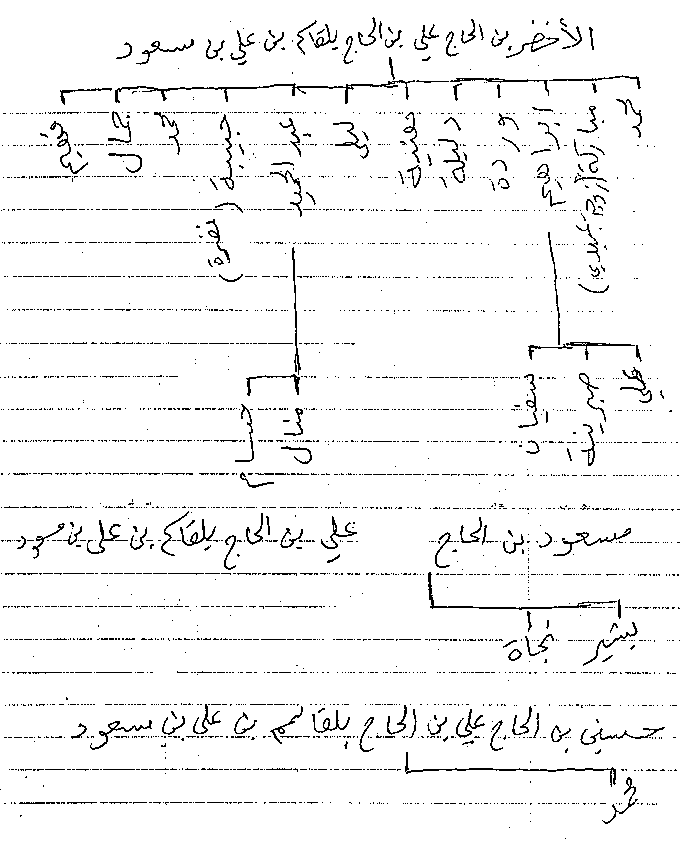 الأخضر بن الحاج علي بن الحاج بلقاسم بن علي بن مسعود
محمد
مباركة (زوج عبيدي)
ابراهيم
وردة
دليلة
ليلى
عبد الحميد
حبيبة (نضرة)
محمد
جمال
علي
صبرينة
سفيان
منال
حسام
مسعود بن الحاج علي بن الحاج بلقاسم بن علي بن مسعود
بشير
نجاة
حسني بن الحاج علي بن الحاج بلقاسم بن علي بن مسعود
محمد